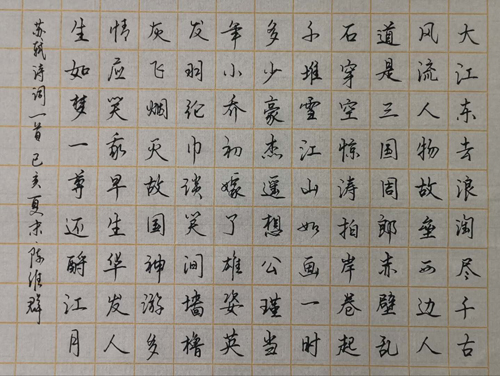 大江东去浪淘尽千古
风流人物故垒西边人
道是三国周郎赤壁乱
石穿空惊涛拍岸卷起
千堆雪江山如画一时
多少豪杰遥想公瑾当
年小乔初嫁了雄姿英
发羽纶巾谈笑间墙橹
灰飞烟灭故国神游多
情应笑我早生华发人
生如梦一尊还酹江月
苏轼诗词一首己亥夏末陈淮群